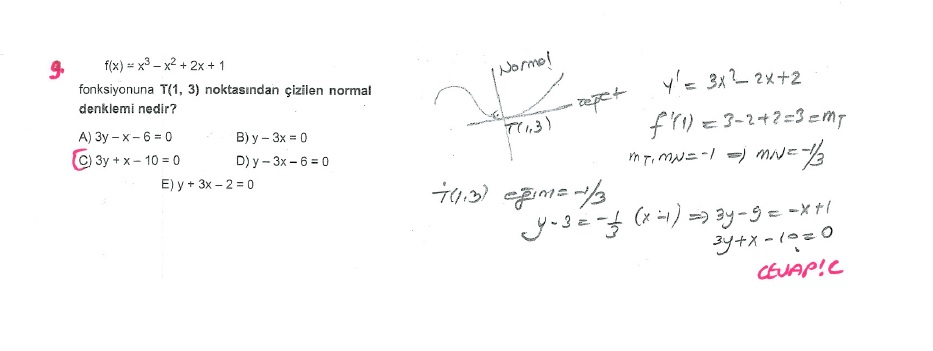 9.
f(x) = x³ – x² + 2x + 1
fonksiyonuna T(1, 3) noktasından çizilen normal
denklemi nedir?
A) 3y – x – 6 = 0
B) y – 3x = 0
C) 3y + x – 10 = 0
D) y – 3x – 6 = 0
E) y + 3x – 2 = 0
Normal
teğet
T(1,3)
y' = 3x² – 2x + 2
f'(1) = 3 – 2 + 2 = 3 = mT
mT, mN = -1 ⇒ mN = -1/3
T(1,3) eğim = -1/3
y - 3 = - 1/3 (x - 1) ⇒ 3y - 9 = -x + 1
3y + x - 10 = 0
CEVAP: C